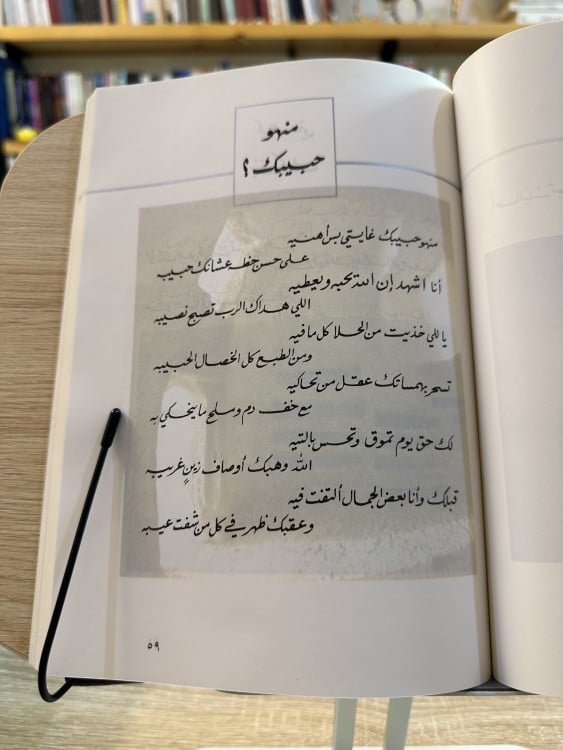 منهو
حبيبك ؟
منهو حبيبك غايتي بس أهنيه
على حسن حظه عشانك حبيب
أنا اشهد إن الله يحبه ويعطيه
اللي هداك الرب تصبح نصيبه
يا للي خذيت من الحلا كل ما فيه
ومن الطبع كل الخصال الحبيبه
تسحر بهمساتك عقل من تحاكيه
مع خف دم وملح ما ينحكي به
لك حق يوم تموق وتحس بالتيه
الله وهبك أوصاف زينٍ غريبه
قبلك وأنا بعض الجمال ألتفت فيه
وعقبك ظهر في كل من شفت عيبه
٥٩